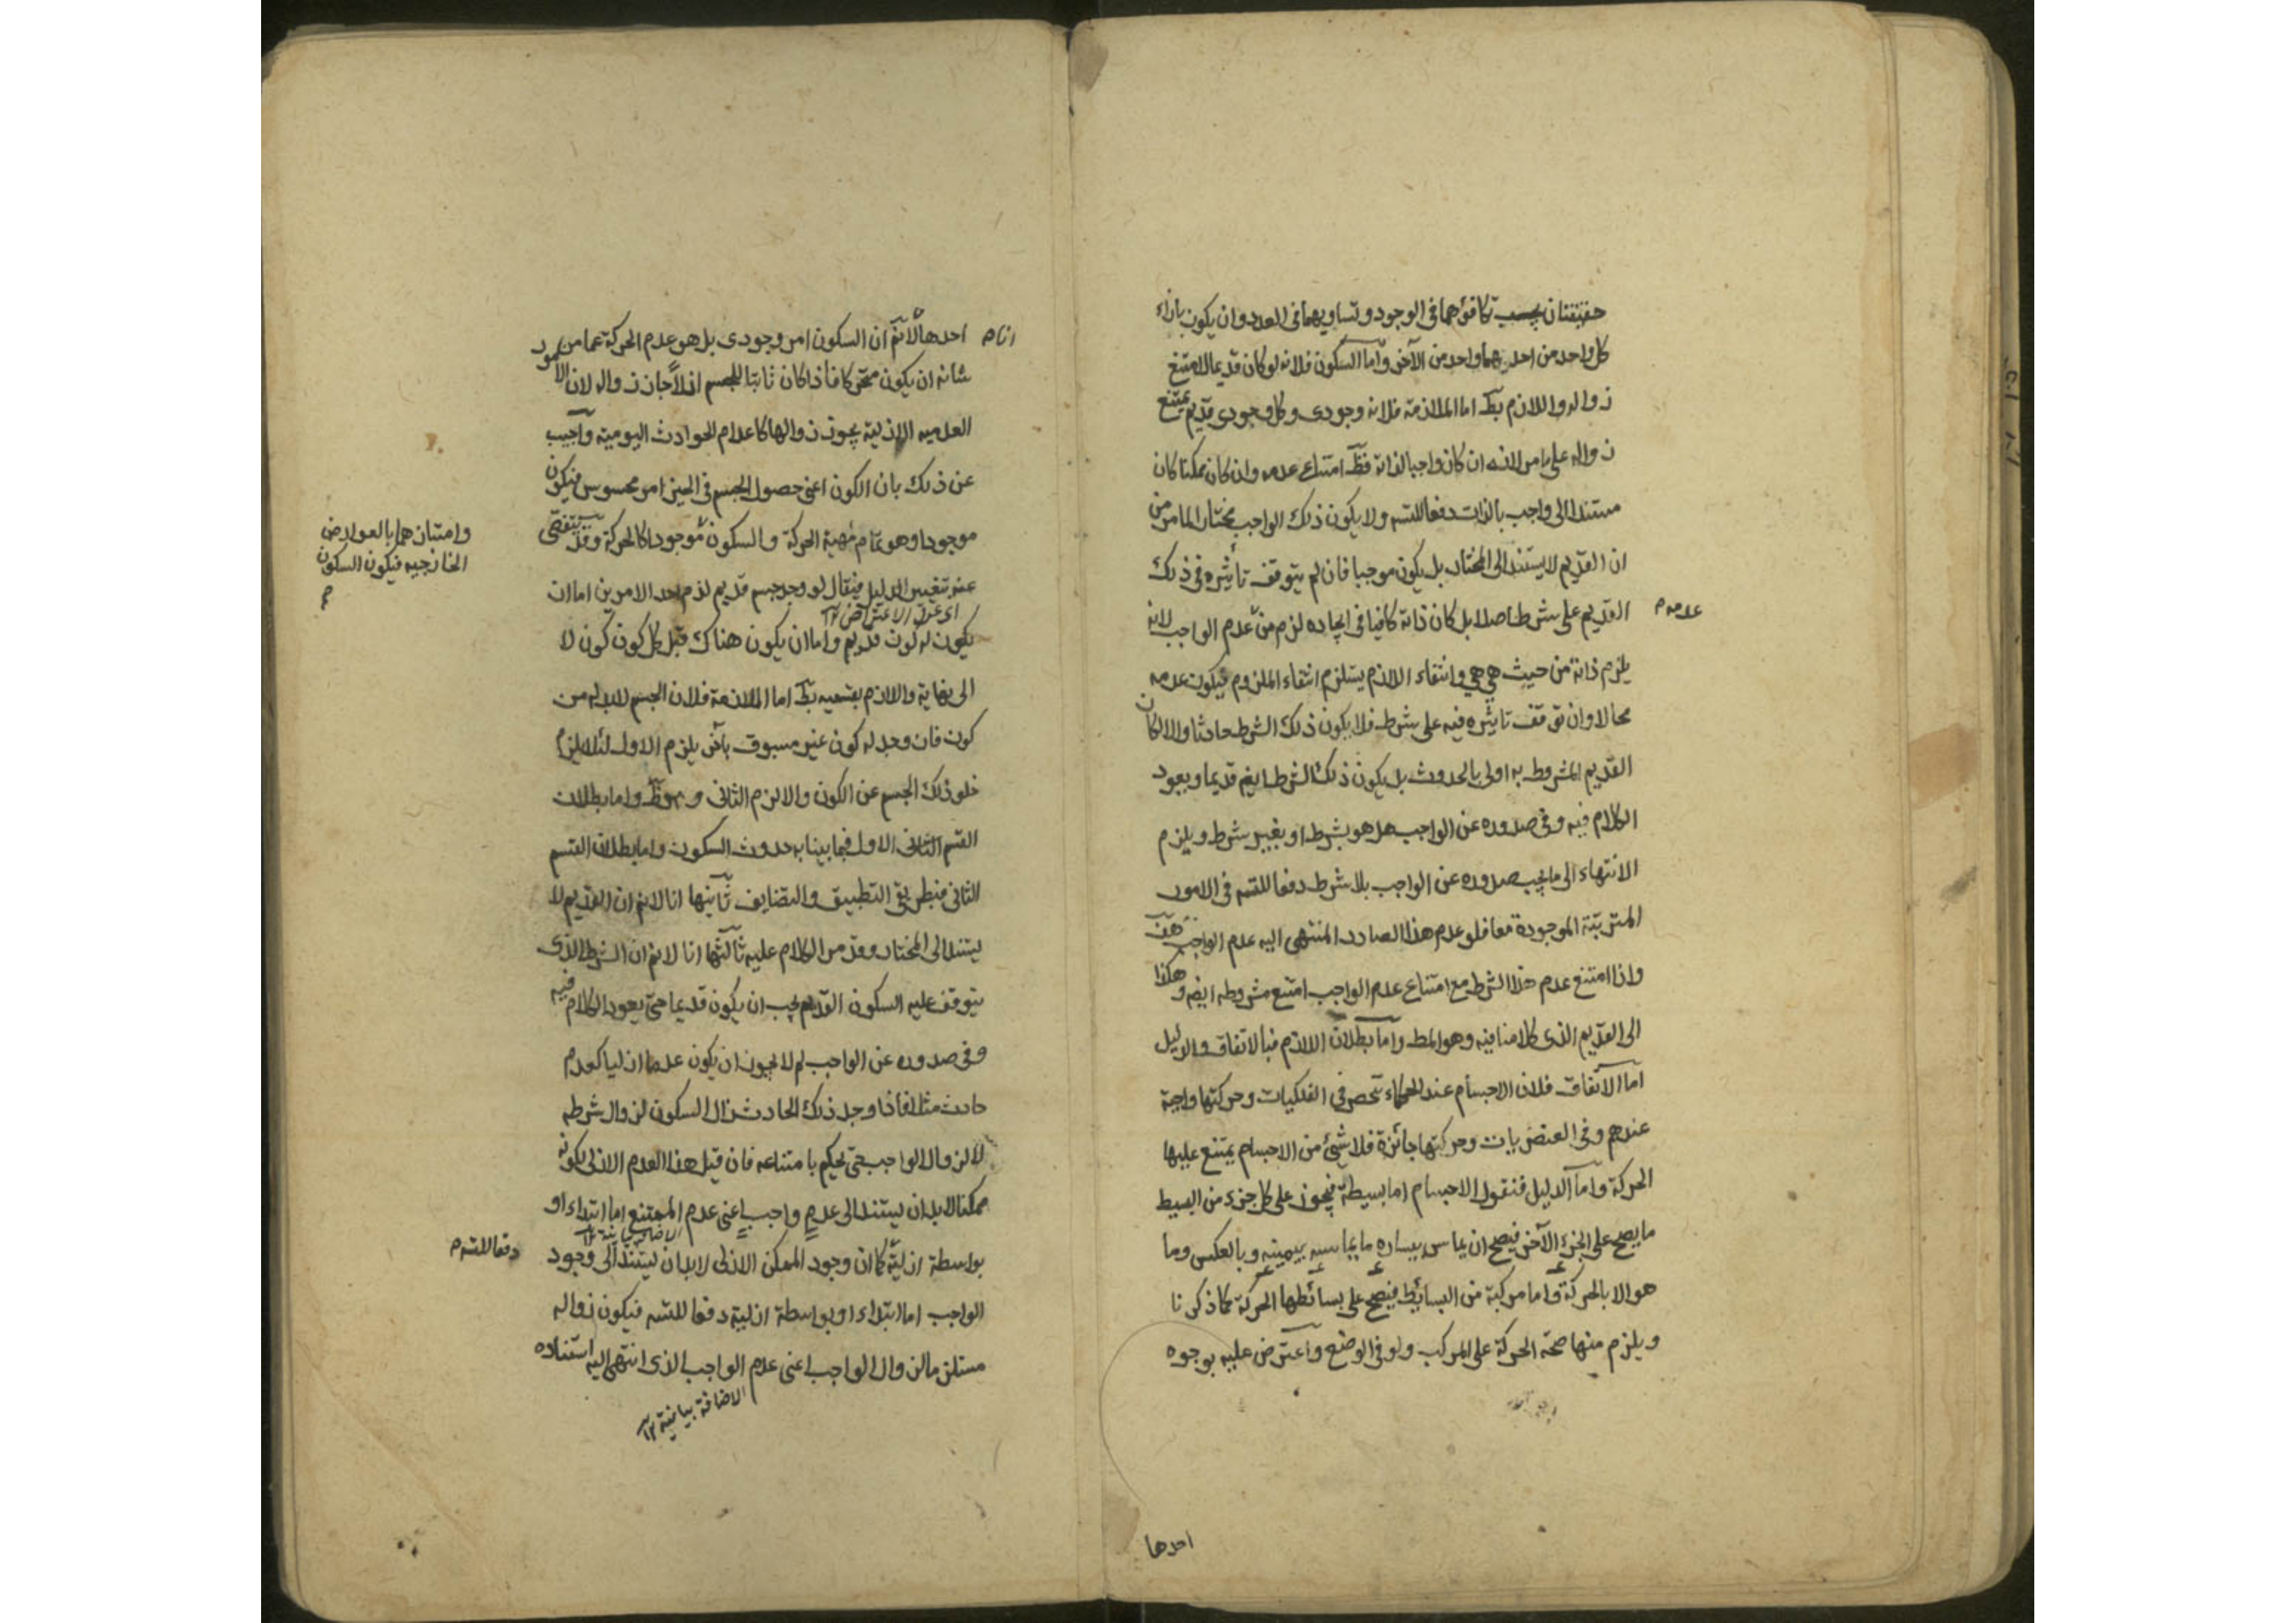 حقيقتان بحسب تكافؤهما في الوجود وتساويهما في العدد وان يكون بازاء
كل واحد من احديهما واحد من الآخر واما السكون فلانه لو كان قديما لامتنع
زواله واللازم بط اما الملازمة فلانه وجودى وكل وجودى قديم يمتنع
زواله على ما مر لانه ان كان واجبا لذاته فظ امتناع عدمه وان كان ممكنا كان
مستندا الى واجب بالذات دفعا للتسه ولا يكون ذلك الواجب مختارا لما مر من
ان القديم لا يستند الى المختار بل يكون موجبا فان لم يتوقف تاثيره في ذلك
القديم على شرط اصلا بل كان ذاته كافيا في ايجاده لزم من عدم الواجب لانه
عدمه م
يلزم ذاته من حيث هي هي وانتفاء اللازم يستلزم انتفاء الملزوم فيكون عدمه
محالا وان توقف تاثيره فيه على شرط فلا يكون ذلك الشرط حادثا والا لكان
القديم المشروط به اولى بالحدوث بل يكون ذلك الشرط ايض قديما ويعود
الكلام فيه وفي صدوره عن الواجب هل هو بشرط او بغير شرط ويلزم
الانتهاء الى ما يجب صدوره عن الواجب بلا شرط دفعا للتسه في الامور
المترتبة الموجودة معا فلو عدم هذا الصادر المنتهى اليه عدم الواجب هف
واذا امتنع عدم هذا الشرط مع امتناع عدم الواجب امتنع مشروطه ايضه وهكذا
الى القديم الذى كلامنا فيه وهو المط واما بطلان اللازم فبالاتفاق والدليل
اما الاتفاق فلان الاجسام عند الحكماء تنحصر في الفلكيات وحركتها واجبة
عندهم وفي العنصريات وحركتها جائزة فلا شئ من الاجسام يمتنع عليها
الحركة واما الدليل فنقول الاجسام اما بسيطة فيجوز على كل جزء من البسيط
ما يصح على الجزء الآخر فيصح ان يماس يساره ما يماسه بيمينه وبالعكس وما
هو الا بالحركة واما مركبة من البسائط فيصح على بسائطها الحركة كما ذكرنا
ويلزم منها صحة الحركة على المركب ولو في الوضع واعترض عليه بوجوه
احدها
احدها لا نم ان السكون امر وجودى بل هو عدم الحركة عما من
انا م
شانه ان يكون متحركا فاذا كان ثابتا للجسم ازلا جاز زواله لان الامور
العدميه الازلية يجوز زوالها كاعدام الحوادث اليومية واجيب
عن ذلك بان الكون اعنى حصول الجسم في الحيز امر محسوس فيكون
موجودا وهو تمام مهية الحركة والسكون موجودا كالحركة وقد يتفصى
وامتيازهما بالعوارض
الخارجيه فيكون السكون
م
عنه بتغيير الدليل فيقال لو وجد جسم قديم لزم احد الامرين اما ان
اى عن الاعتراض ١٢
يكون له كون قديم واما ان يكون هناك قبل كل كون كون لا
الى نهاية واللازم بقسميه بط اما الملازمة فلان الجسم لا بد له من
كون فان وجد له كون غير مسبوق بآخر يلزم الاول لئلا يلزم
خلو ذلك الجسم عن الكون والا لزم الثانى وهو ظ واما بطلان
القسم الثانى الاول فبما بينا به حدوث السكون واما بطلان القسم
الثانى فبطريق التطبيق والتضايف ثانيها انا لا نم ان القديم لا
يستند الى المختار وقد مر الكلام عليه ثالثها انا لا نم ان الشرط الذى
يتوقف عليه السكون القديم يجب ان يكون قديما حتى يعود الكلام فيه
وفي صدوره عن الواجب لم لا يجوز ان يكون عدما ازليا كعدم
حادث مثلا فاذا وجد ذلك الحادث زال السكون لزوال شرطه
لا لزوال الواجب حتى يحكم بامتناعه فان قيل هذا العدم الازلى لكونه
ممكنا لا بد ان يستند الى عدم واجب اعنى عدم الممتنع اما ابتداء او
بواسطة ازلية كما ان وجود الممكن الازلى لا بد ان يستند الى وجود
دفعا للتسه م
الواجب اما ابتداء او بواسطة ازلية دفعا للتسه فيكون زواله
مستلزما لزوال الواجب اعنى عدم الواجب الذى انتهى اليه استناده
الاضافة بيانية ١٢